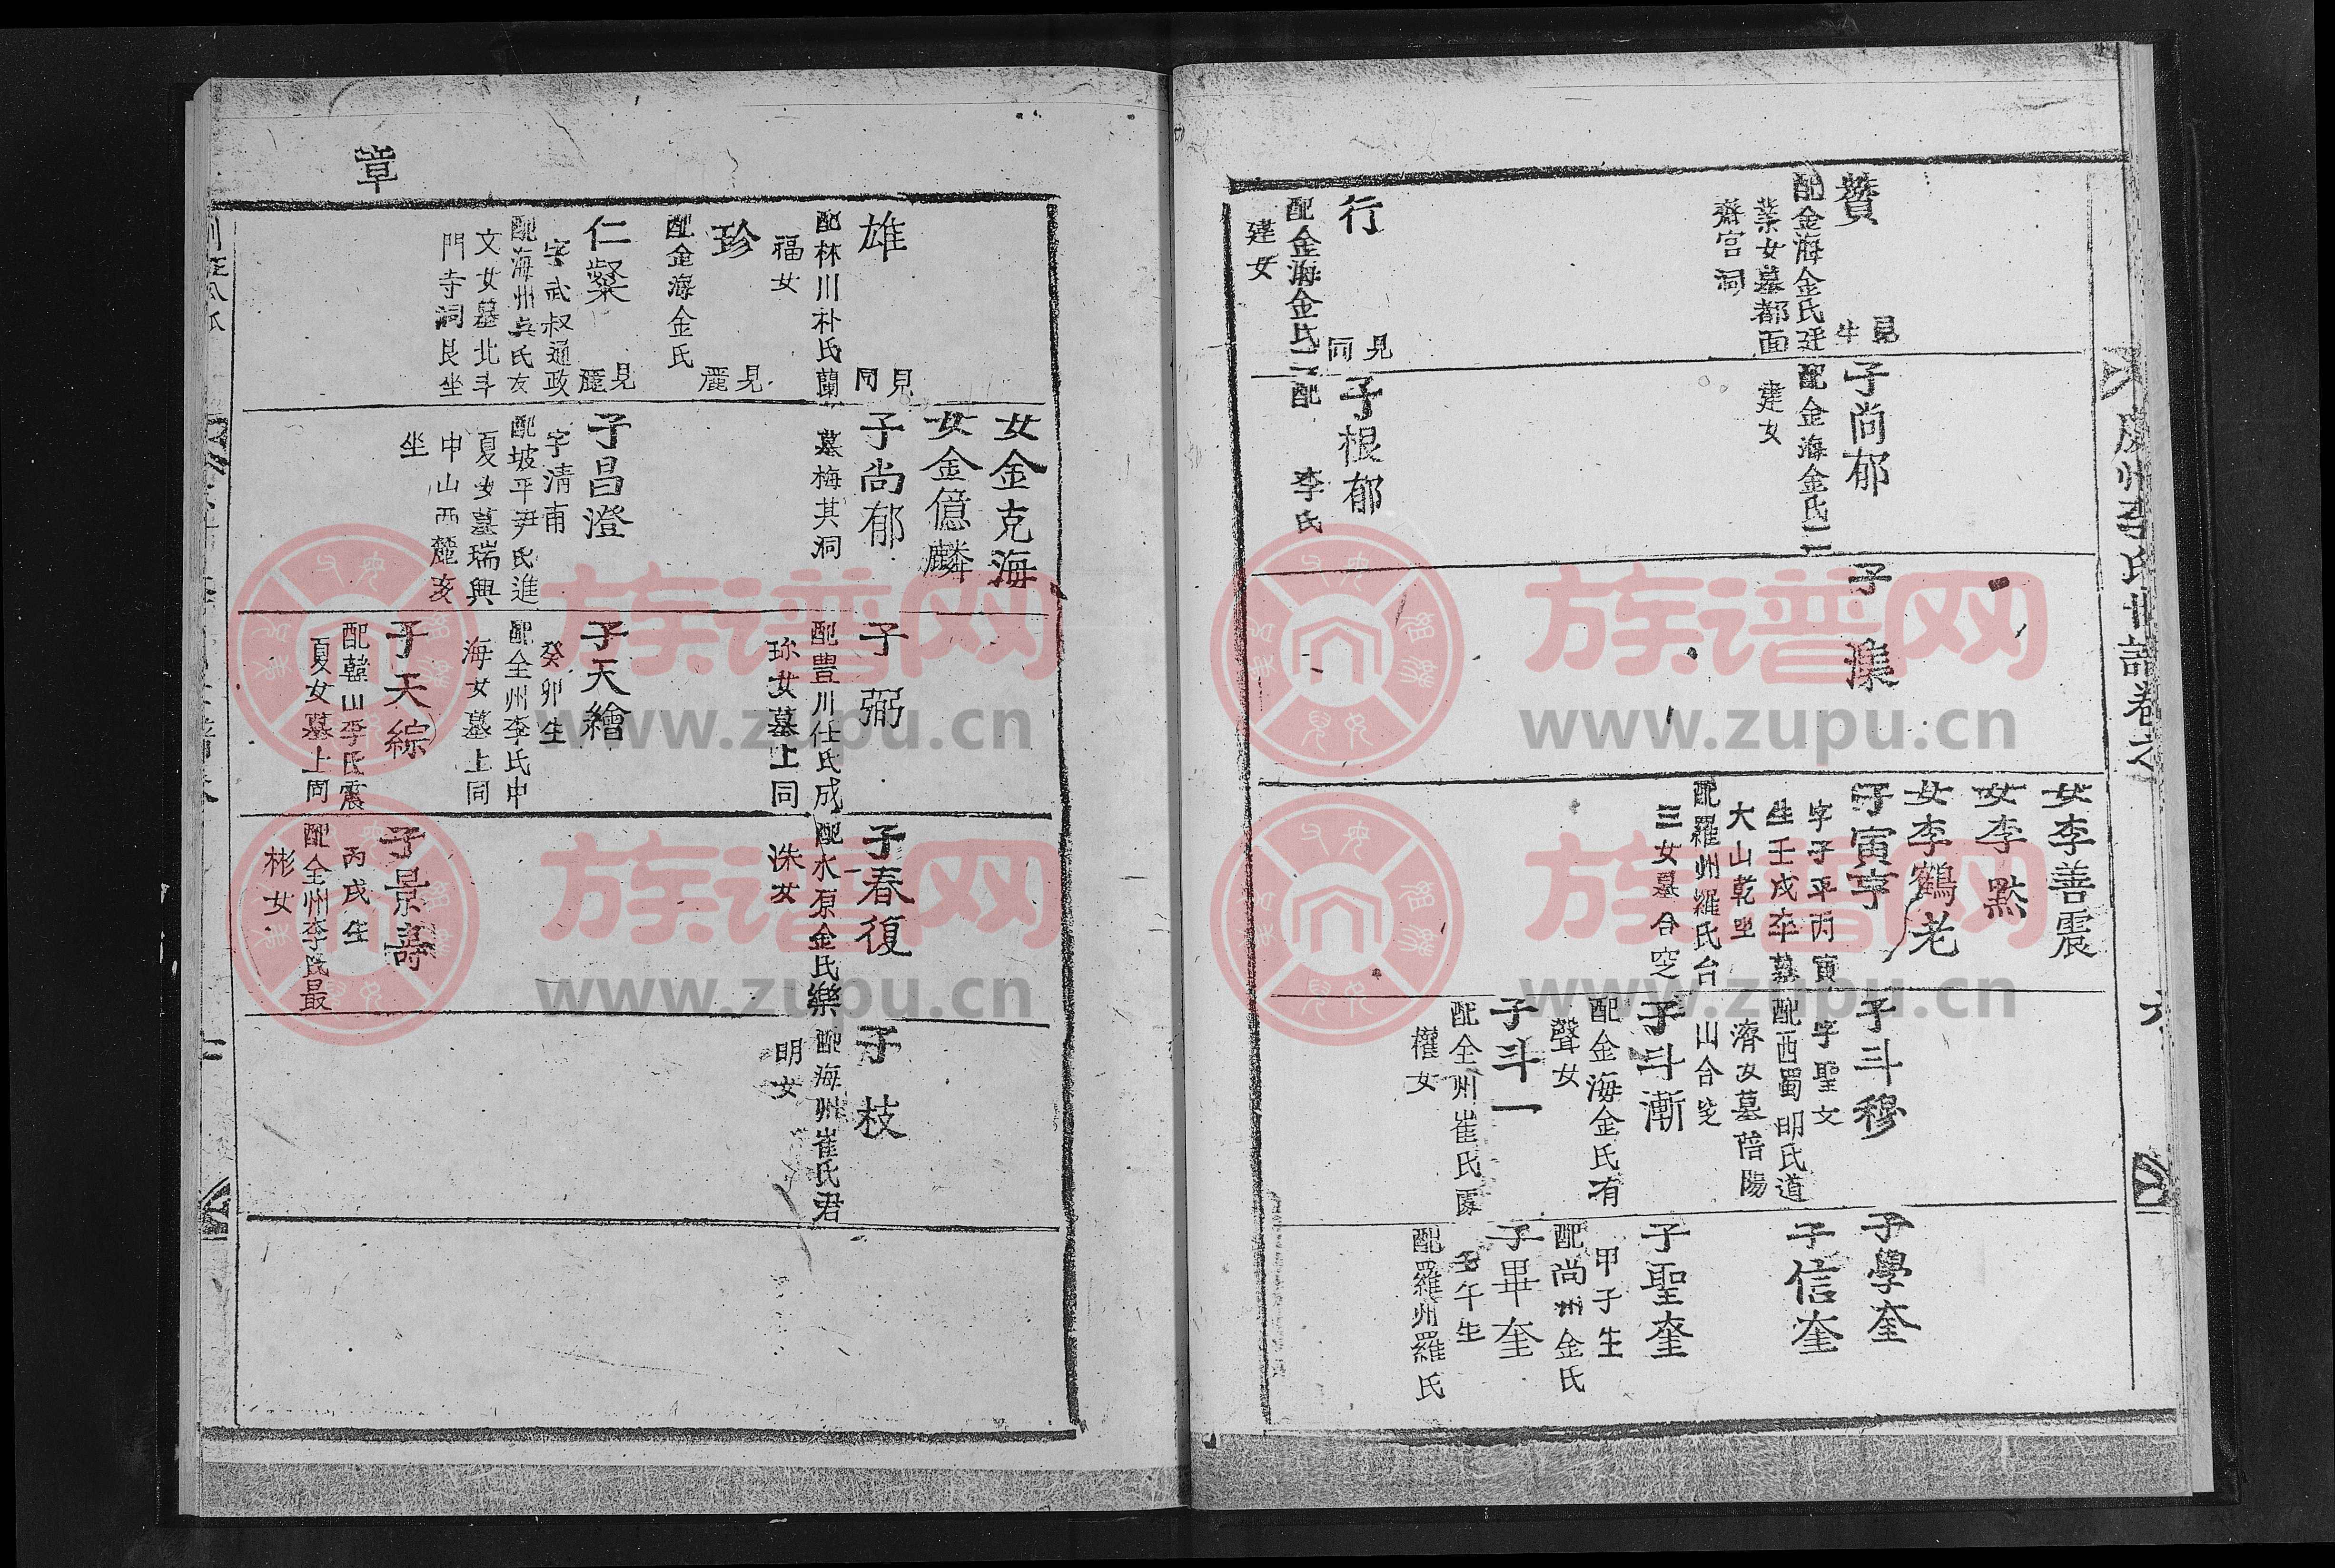 慶州李氏世譜卷之
六
贊
見
生
配金海金氏廷
業女墓都面
齋宮洞
行
見
同
配金海金氏二
建女
子尚郁
配金海金氏二
建女
子根郁
配 李氏
子 濮
女李善震
女李 㸃
女李鶴老
子寅亨
字子平丙寅
生壬戌卒墓
大山乾坐
配羅州羅氏台
三女墓合窆
子斗穆
字聖文
配西蜀明氏道
濟女墓陪陽
山合窆
子斗漸
配金海金氏有
聲女
子斗一
配全州崔氏厦
權女
子學奎
子信奎
子聖奎
甲子生
配尚州金氏
子畢奎
壬午生
配羅州羅氏
章
雄
見
同
配林川朴氏蘭
福女
珍
見
麗
配金海金氏
仁粲
見
麗
字武叔通政
配海州吳氏友
文女墓北斗
門寺洞艮坐
女金克海
女金億麟
子尚郁
墓梅其洞
子昌澄
字清甫
配坡平尹氏進
夏女墓瑞興
申山西麓亥
坐
子 弼
配豊川任氏成
珎女墓上同
子天繪
癸卯生
配全州李氏中
海女墓上同
子天綜
配韓山李氏震
夏女墓上同
子春復
配水原金氏樂
洙女
子景壽
丙戌生
配全州李氏最
彬女
子 枝
配海州崔氏君
明女
族谱网
www.zupu.cn
族谱网
www.zupu.cn
族谱网
www.zupu.cn
族谱网
www.zupu.cn